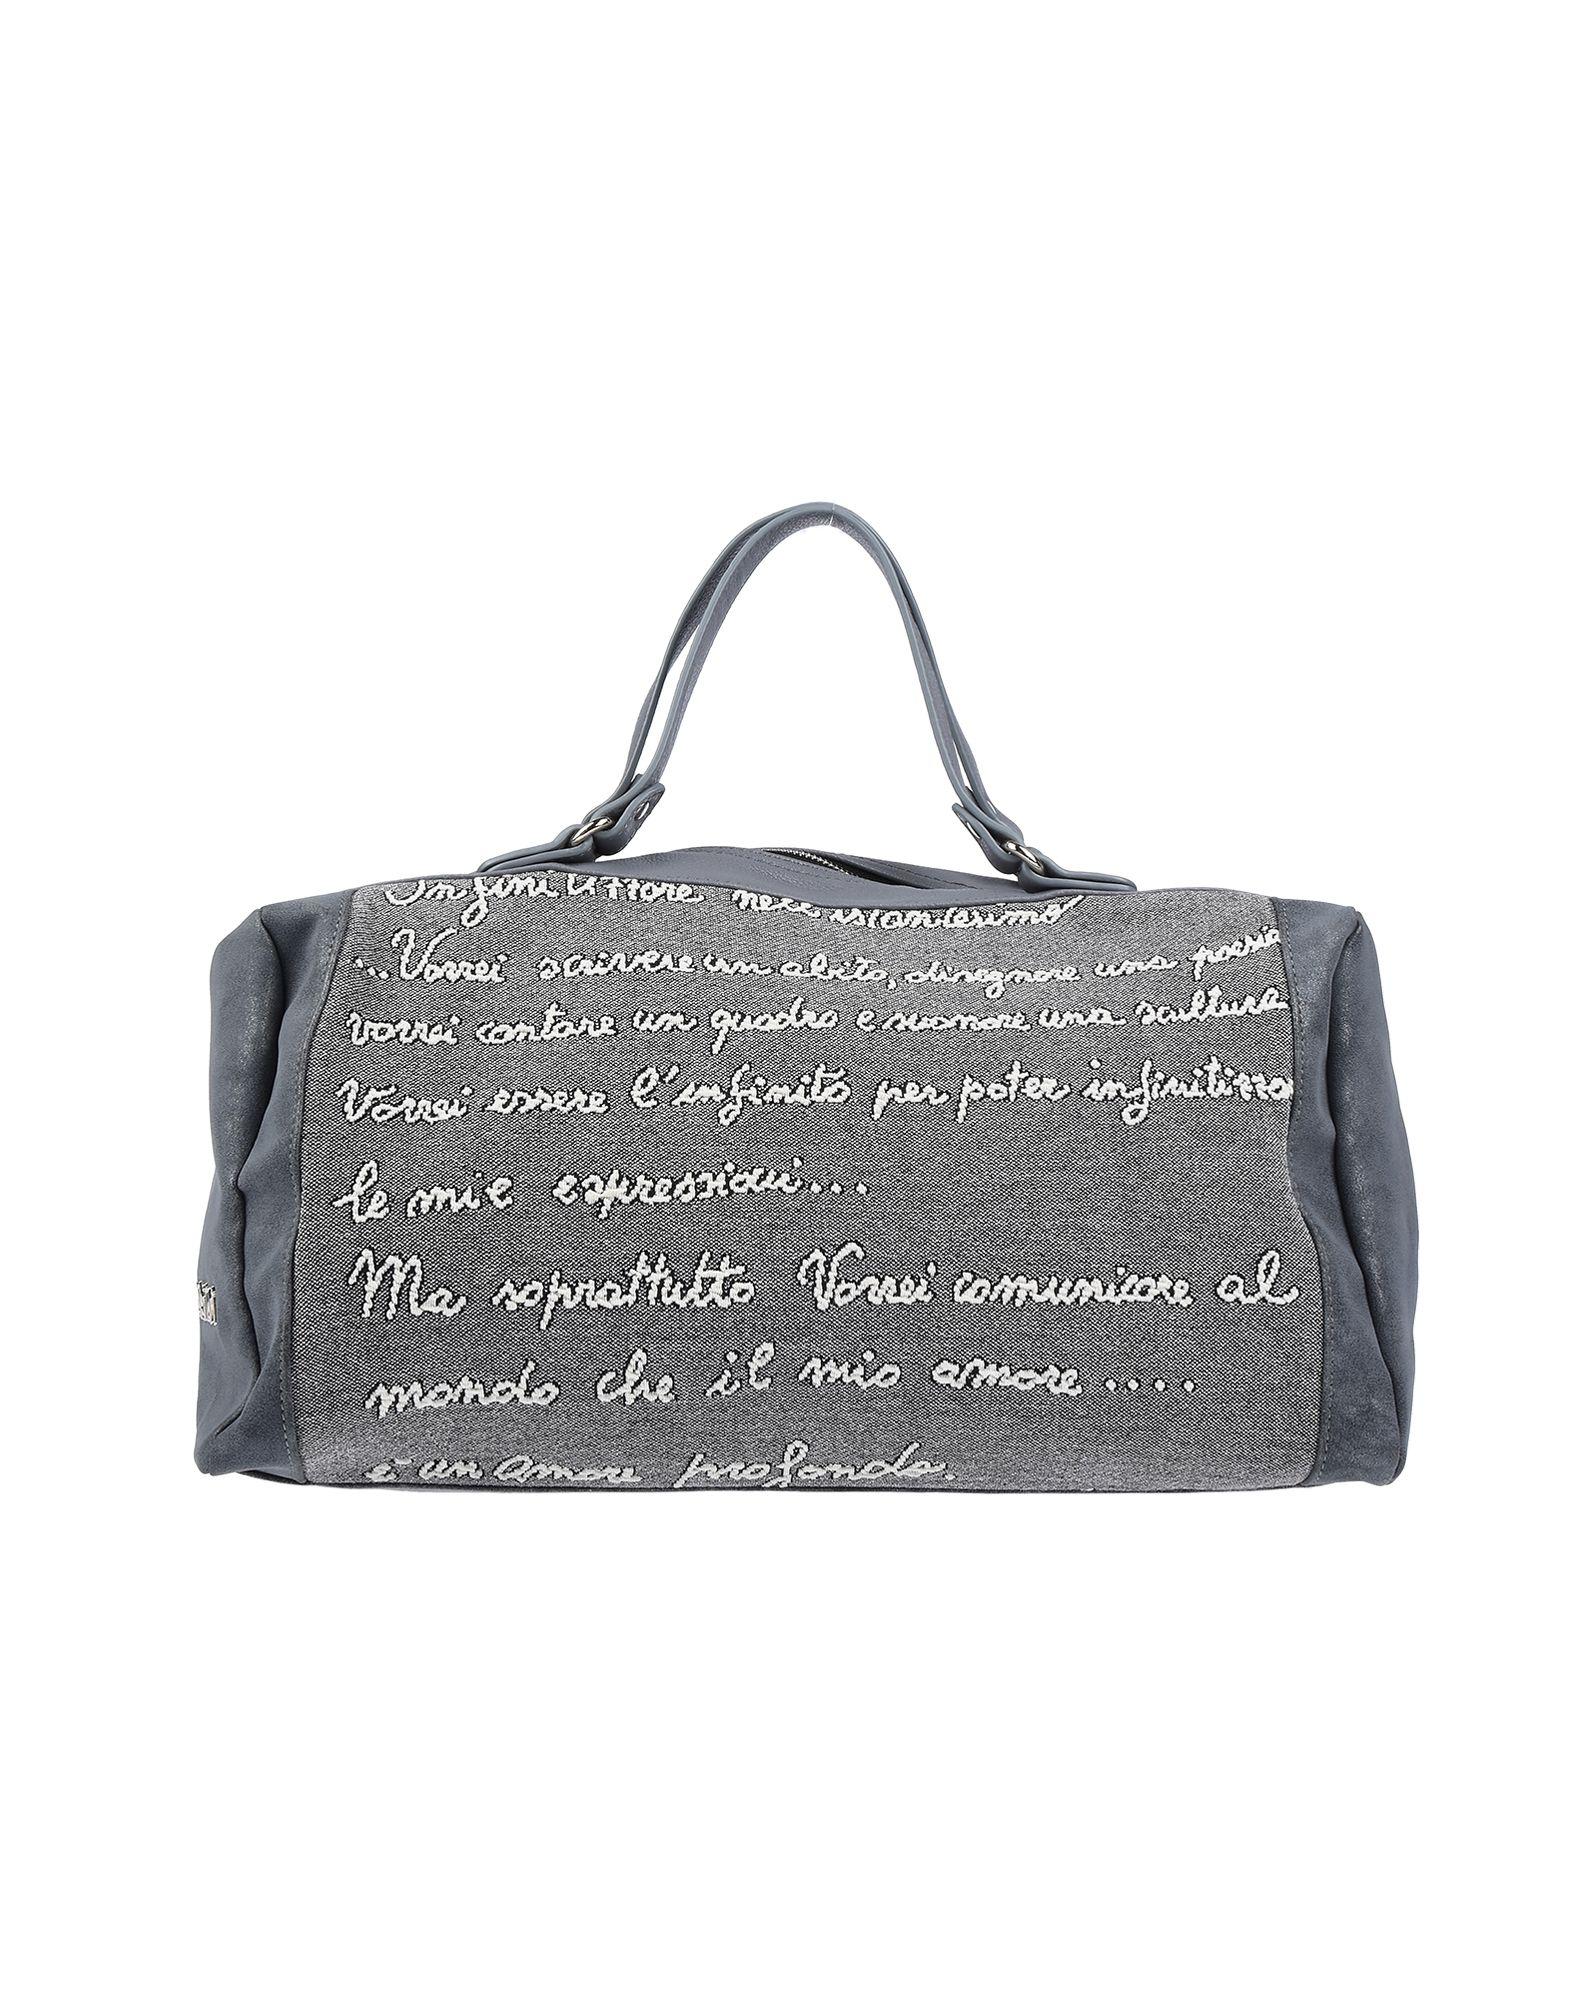 nell'
...Vorrei scrivere un abito, disegnare una poesia
vorrei cantare un quadro e suonare una scultura
Vorrei essere l'infinito per poter infinitizza
le mie espressioni...
Ma soprattutto Vorrei comunicare al
mondo che il mio amore....
è un amore profondo.